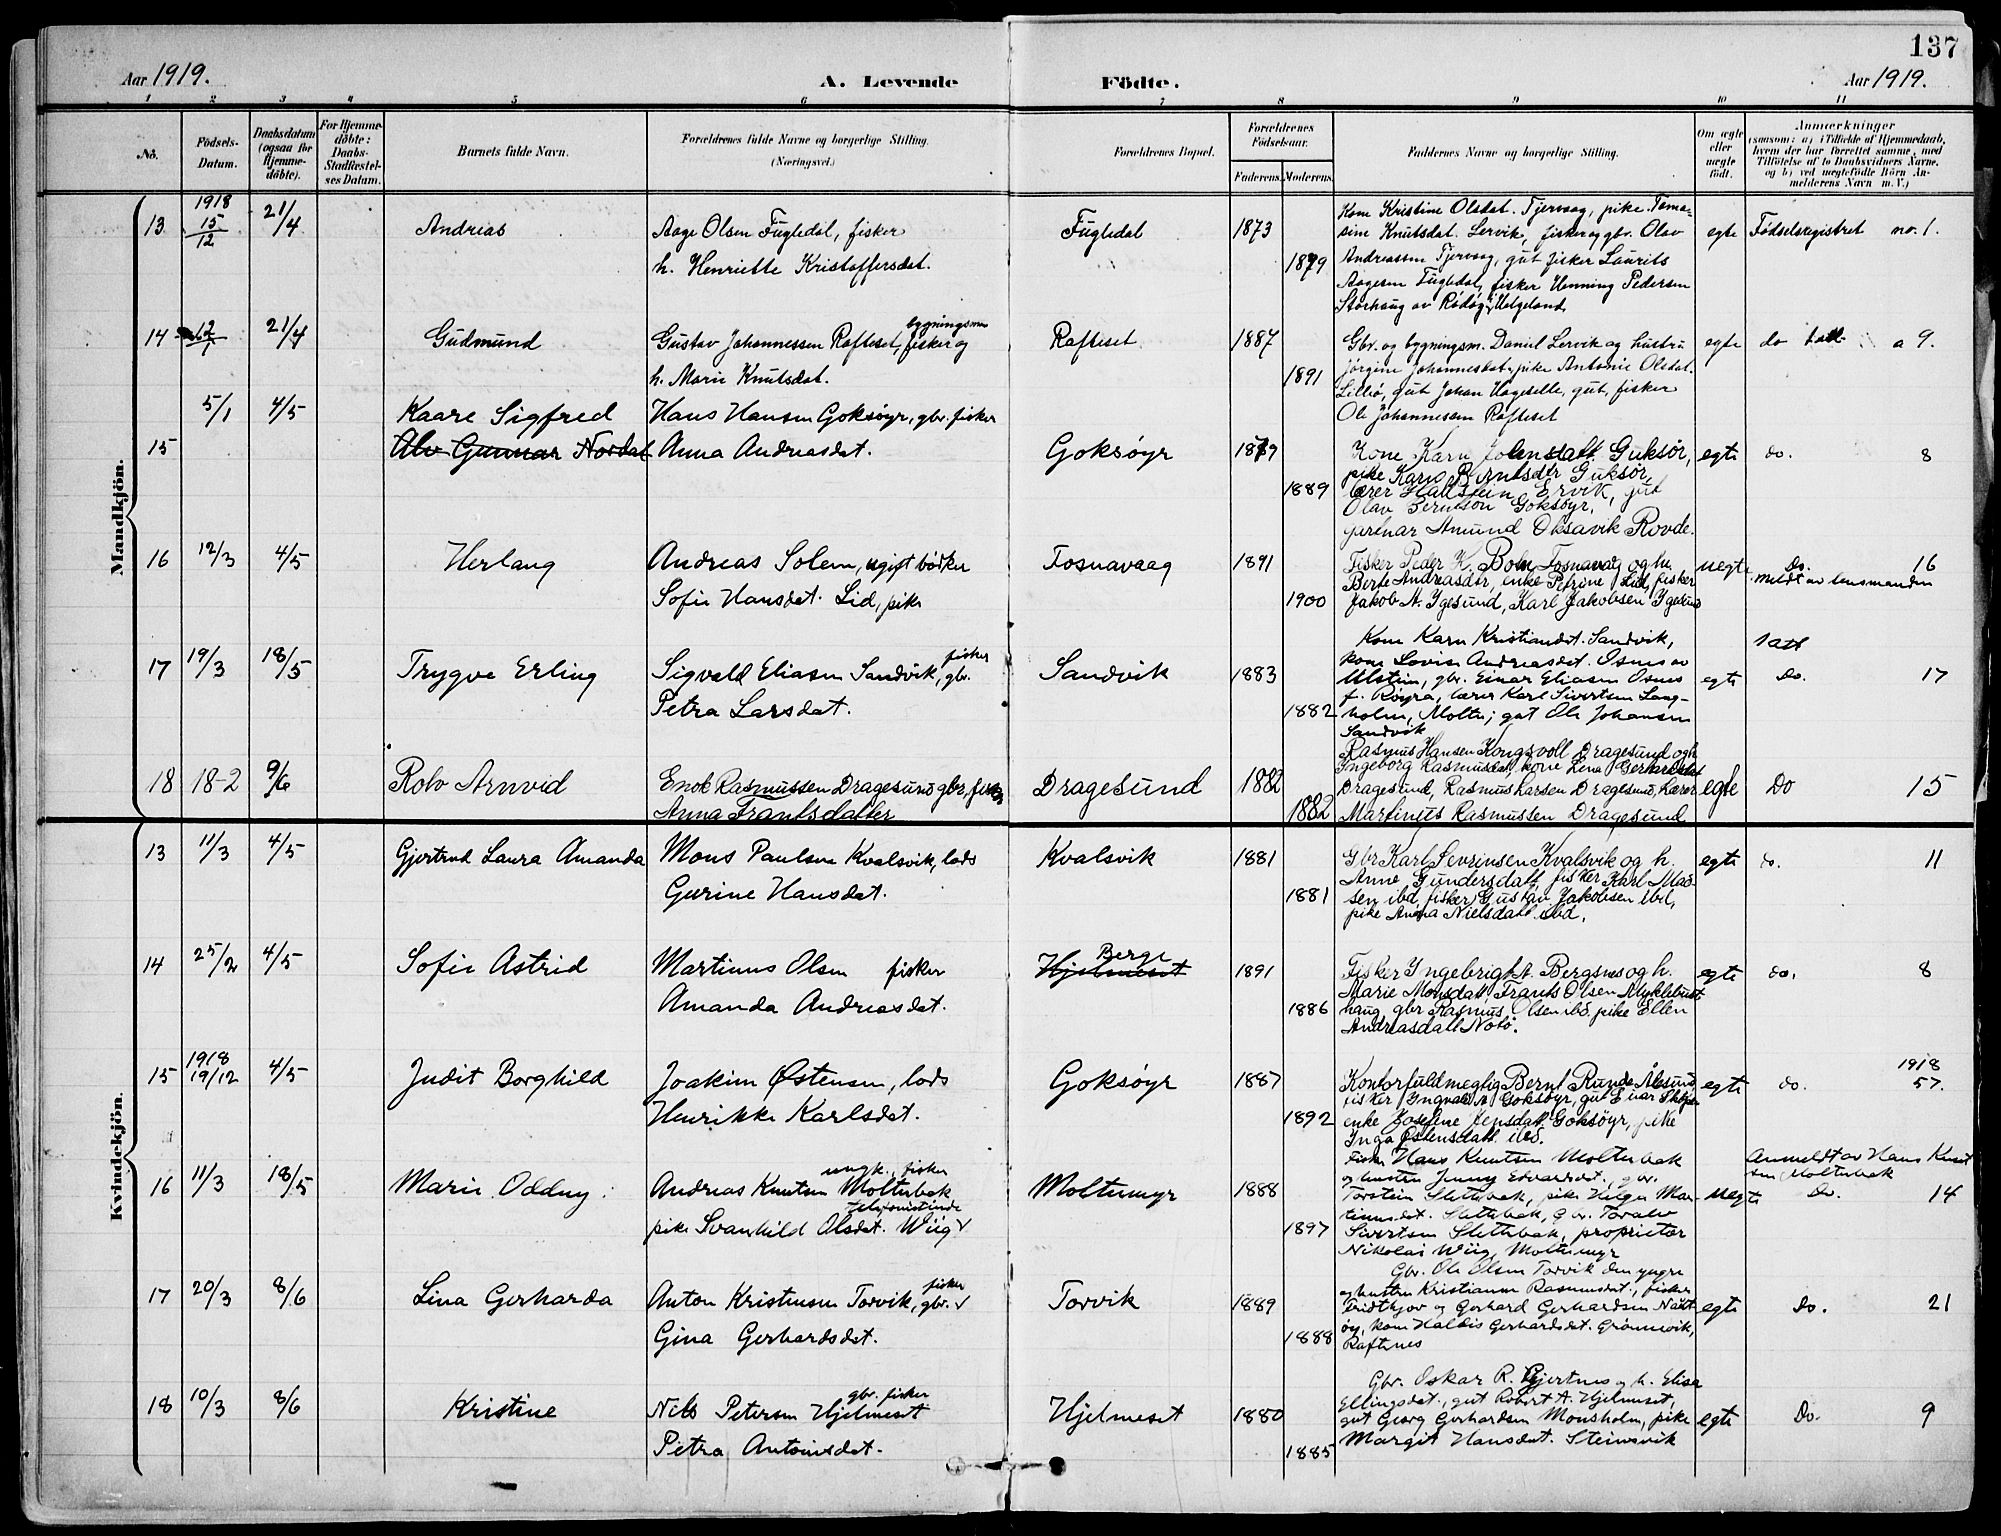 137
Aar 1919.
A. Levende Födte.
Aar 1919.
1 2 3 4 5 6 7 8 9 10 11
No.
Födsels-
Datum.
Daabsdatum
(ogsaa for
Hjemme-
döbte).
For Hjemme-
döbte:
Daabs-
Stadfæstel-
ses Datum.
Barnets fulde Navn.
Forældrenes fulde Navne og borgerlige Stilling.
(Næringsvei.)
Forældrenes Bopæl.
Forældrenes
Födselsaar.
Faderens. Moderens.
Faddernes Navne og borgerlige Stilling.
Om ægte
eller
uægte
født.
Anmærkninger
(saasom: a) i Tilfælde af Hjemmedaab,
hvem der har forrettet samme, med
Tilföielse af to Daabsvidners Navne,
og b) ved uægtefödte Börn An-
melderens Navn m. V.)
Mandkjön.
13 1918 15/12 21/4 Andreas
Aage Olsen Fugledal, fisker
h. Henriette Kristoffersdat.
Fugledal 1873 1879
Kone Kristine Olsdat. Tjervaag, pike Toma-
sine Knutsdat. Lervik, fisker og gbr. Olav
Andreassen Tjervaag, gut fisker Laurits
Aagesen Fugledal, fisker Henning Pedersen
Storhaug av Rödög, Helgeland
egte Födselsregistret no. 1.
14 21/4 Gudmund
Gustav Johannessen Rafteset, fisker og bygningsm
h. Marie Knutsdat.
Rafteset 1887 1891
Gbr. og bygningsm. Daniel Lervik og hustru
Jörgine Johannesdat. pike Antonie Olsdat.
Lillö, gut Johan Hageselle, gut, fisker
Ole Johannesen Rafteset
egte do a 9.
15 5/1 4/5 Kaare Sigfred
Alv Gunnar Nordal
Hans Hansen Goksöyr, gbr. fisker
Anna Andreasdat.
Goksöyr 1879 1889
Kone Karn Jolenstatt Guksör,
pike Karn Berntsdtr Guksör,
lærer Hallstein Ervik, gut
Olav Berntson Goksöyr,
gartnar Amund Oksavik Rovde.
egte do. 8
16 12/3 4/5 Herlaug
Andreas Solem, ugift bödker
Sofie Hansdat. Lid, pike
Fosnavaag 1891 1900
Fisker Peder K. Bolm Fosnavaag og h.
Berte Andreasdtr, enke Petrine Lid, fisker
Jakob A. Ygesund, Karl Jakobsen Ygesund
uegte Do. 16
meldt av lensmanden
17 19/3 18/5 Trygve Erling
Sigvald Eliasen Sandvik, gbr. fisker
Petra Larsdat.
Sandvik 1883 1882
Kone Karn Kristiandat. Sandvik,
kone Lovise Andreasdat. Osnes av
Ulstein, gbr. Einar Eliasen Osnes
f. Röyra, lærer Karl Sivertsen Lang-
holm, Moltu; gut Ole Johansen
Sandvik
egte 1 att Do. 17
18 18-2 9/6 Rolv Arnvid
Enok Rasmussen Dragesund gbr, fisker
Anna Frantsdatter
Dragesund 1882 1882
Rasmus Hansen Kongsvoll Dragesund og h
Ingeborg Rasmusdat, kone Lena Gerhardsdat
Dragesund, Rasmus Larsen Dragesund, Lærer
Martinus Rasmussen Dragesund
egte Do 15
Kvindekjön.
13 11/3 4/5 Gjertrud Laura Amanda
Mons Paulsen Kvalsvik, lods
Gurine Hansdat.
Kvalsvik 1881 1881
Gbr Karl Sevrinsen Kvalsvik og h.
Anne Gundersdatt, fisker Karl Mad-
sen ibd, fisker Gustav Jakobsen ibd,
pike Anna Nielsdatt ibd.
egte do. 11
14 25/2 4/5 Sofie Astrid
Martinus Olsen fisker
Amanda Andreasdat.
Berge
Hjelmeset 1891 1886
Fisker Ingebrigt A. Bergsnes og h.
Marie Monsdatt, Frants Olsen Myklebust
haug, gbr Rasmus Olsen ibd, pike Ellen
Andreasdatt Notö.
egte do. 8
15 1918 19/12 4/5 Judit Borghild
Joakim Østensen, lods
Henrikke Karlsdat.
Goksöyr 1887 1892
Kontorfuldmegtig Bernt Runde Ålesund
fisker Ingvald A Goksöyr, gut Einar
enke Josefine Jensdatt Goksöyr, pike
Inga Østensdatt ibd.
egte do. 1918 57.
16 11/3 18/5 Marie Oddny
Andreas Knutsen Moltubak ungk., fisker
pike Svanhild Olsdat. Wiig telefonistinde
Moltumyr 1888 1897
Fisker Hans Knutsen Moltubak
og hustru Jenny Edvardsdat., gbr.
Torstein Slettebak, pike Helga Mar-
tinusdat. Slettebak, Gbr. Toralv
Sivertsen Slettebak, proprietær
Nikolai Wiig, Moltumyr
uegte Anmeldt av Hans Knut
sen Moltubak
Do. 14
17 20/3 8/6 Lina Gerharda
Anton Kristensen Torvik, gbr. fisker
Gina Gerhardsdat.
Torvik 1889 1888
Gbr. Ole Olsen Torvik den yngre
og hustru Kristianne Rasmusdat., fisker
Fridthjov og Gerhard Gerhardsen Naut-
öy, kone Haldis Gerhardsdat. Grönnevik,
Raftenes
egte Do. 21
18 10/3 8/6 Kristine
Nils Petersen Hjelmeset gbr. fisker
Petra Antonisdat.
Hjelmeset 1880 1885
Gbr. Oskar R. Gjertnes og h. Elisa
Ellingsdat., gut Robert A. Hjelmeset,
gut Georg Gerhardsen Monsholm, pike
Margit Hansdat. Steinsvik
egte Do. 9